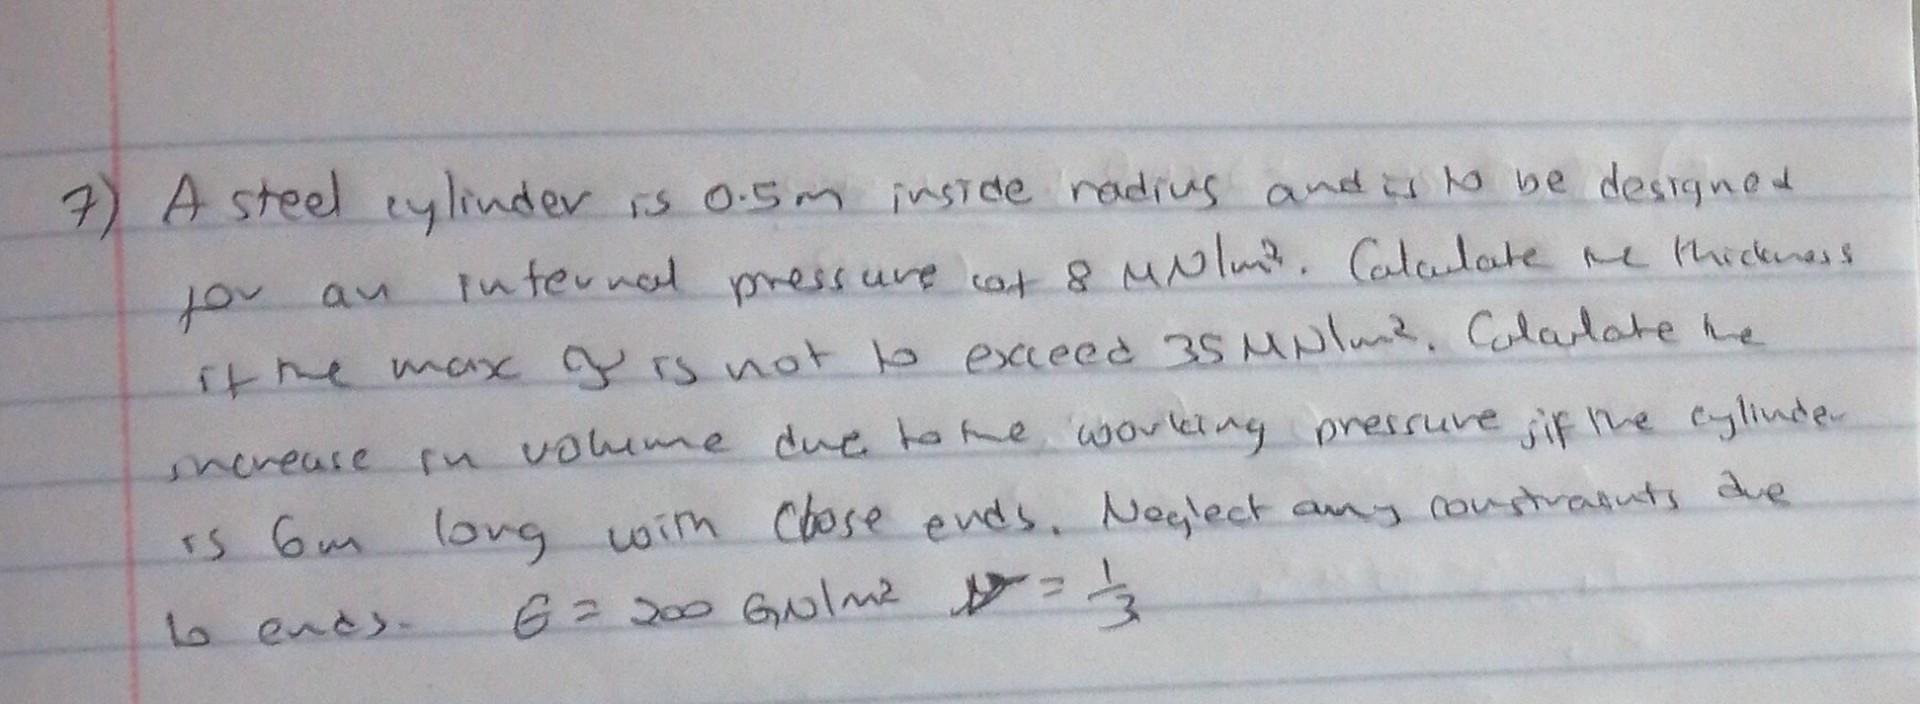 7) A steel cylinder is 0.5m inside radius and is to be designed
for an internal pressure of 8 MN/m². Calculate the thickness
if the max is not to exceed 35 MN/m². Calculate the
increase in volume due to the working pressure, if the cylinder
is 6m long with close ends. Neglect any constraints due
to ends. E = 200 GN/m² = 1/3